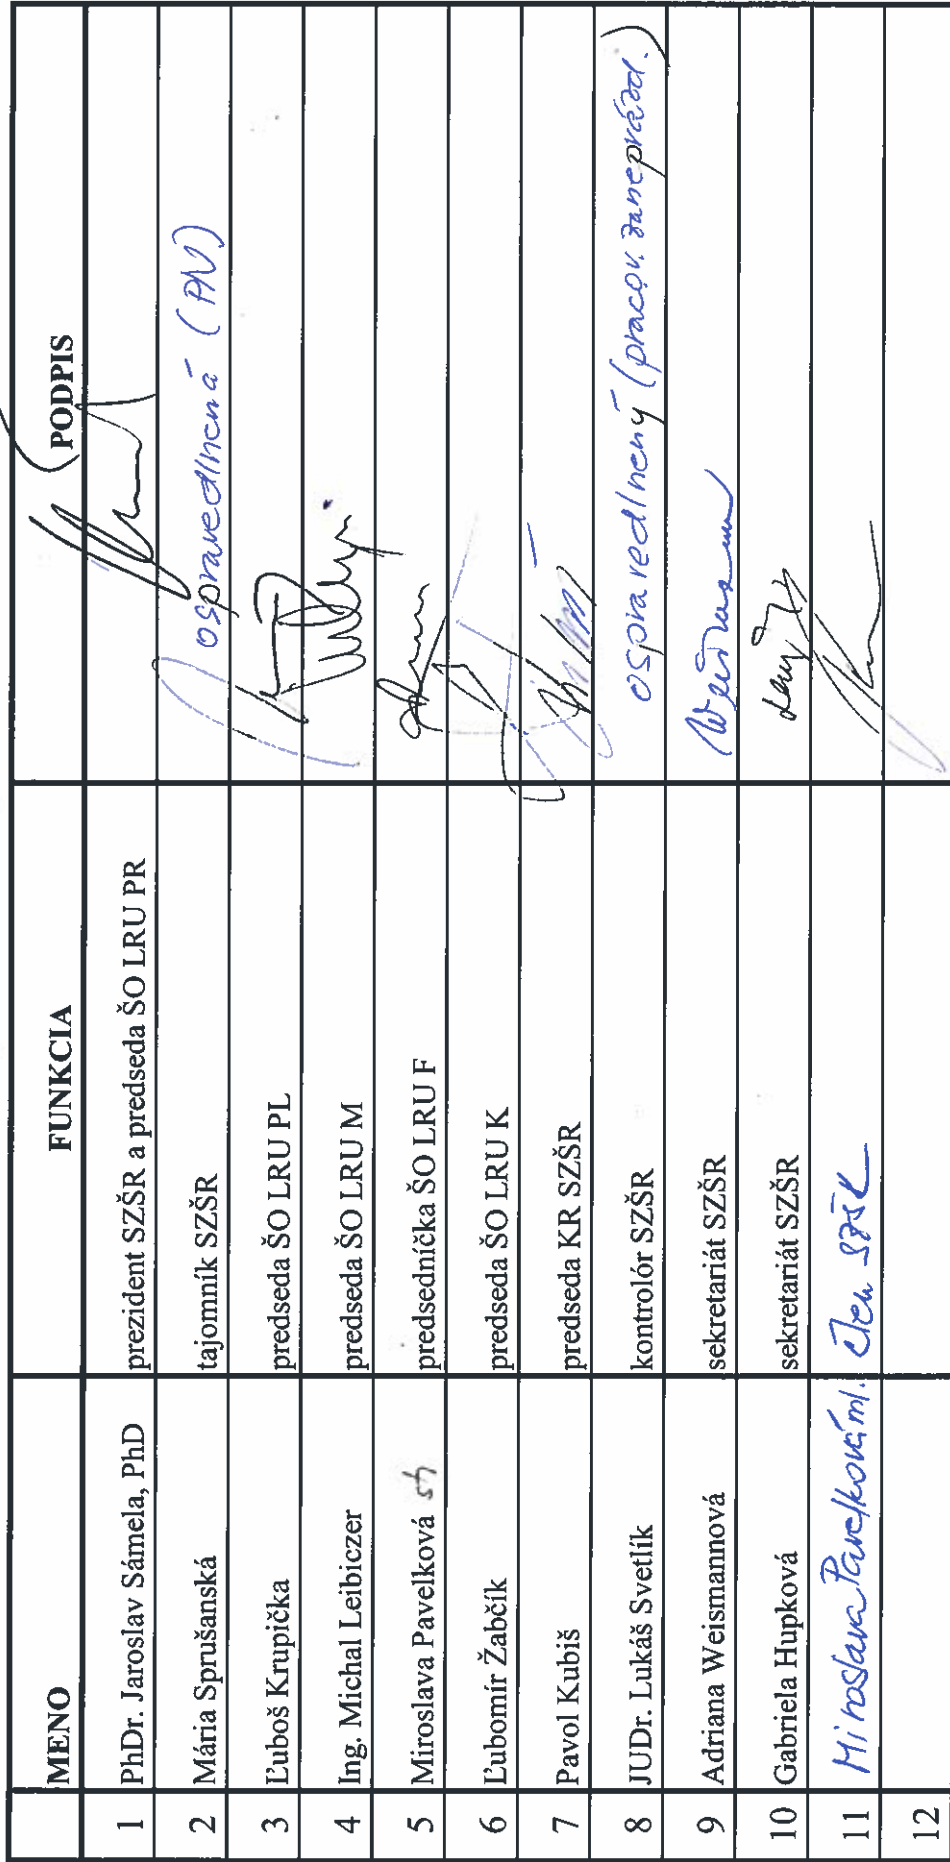 MENO FUNKCIA PODPIS
1 PhDr. Jaroslav Sámela, PhD prezident SZŠR a predseda ŠO LRU PR
2 Mária Sprušanská tajomník SZŠR ospravedlnená (PN)
3 Ľuboš Krupička predseda ŠO LRU PL
4 Ing. Michal Leibiczer predseda ŠO LRU M
5 Miroslava Pavelková st predsedníčka ŠO LRU F
6 Ľubomír Žabčík predseda ŠO LRU K
7 Pavol Kubiš predseda KR SZŠR
8 JUDr. Lukáš Svetlík kontrolór SZŠR ospravedlnený (pracov. zaneprázd.)
9 Adriana Weismannová sekretariát SZŠR
10 Gabriela Hupková sekretariát SZŠR
11 Miroslava Pavelková ml. člen SZŠR
12